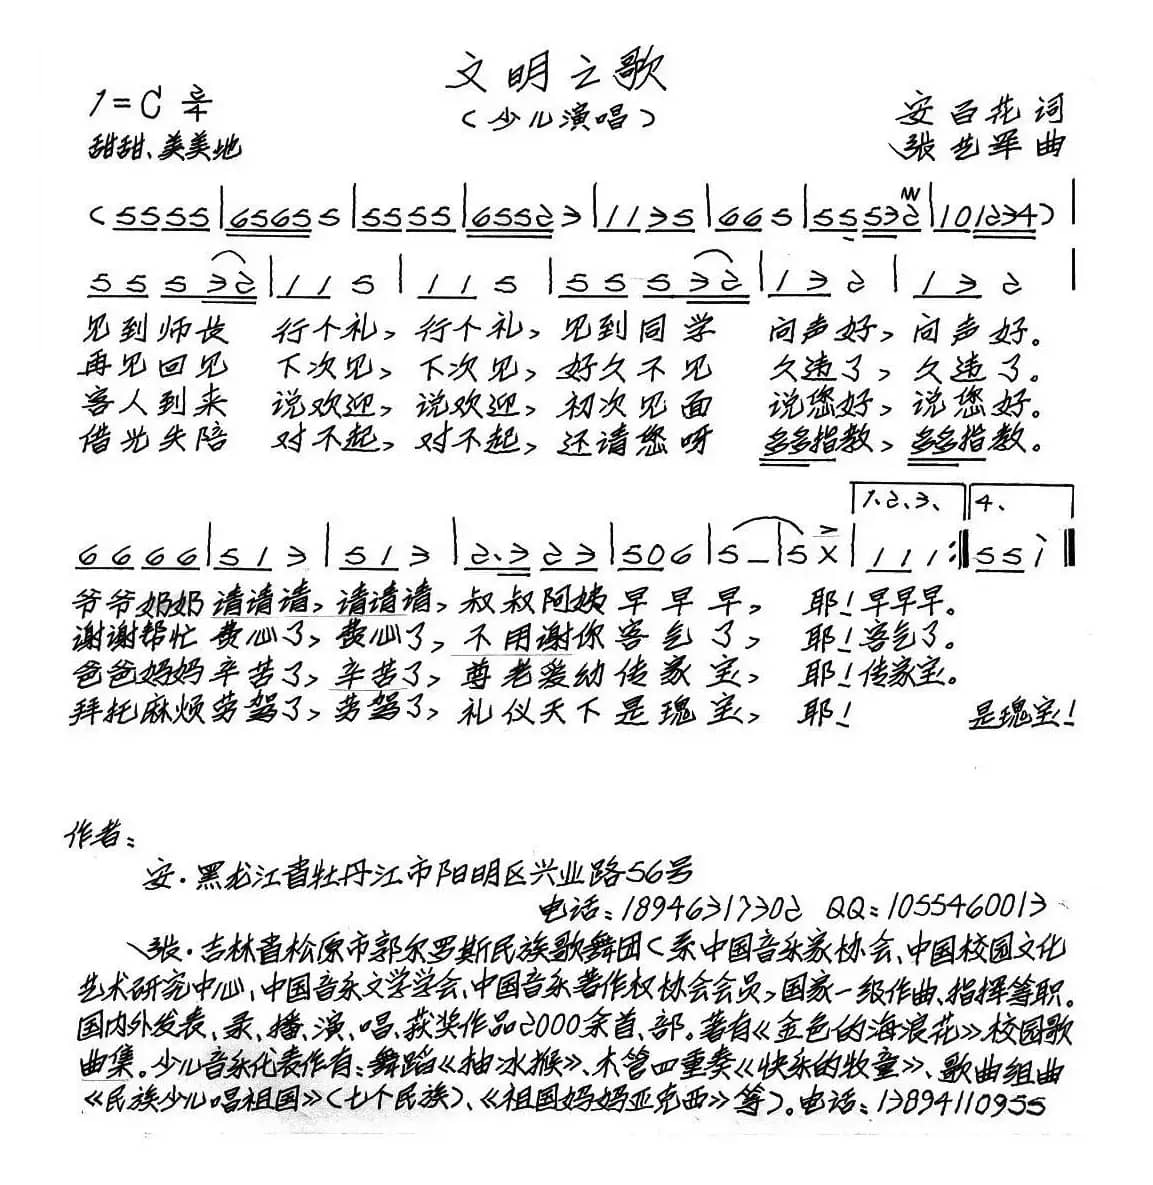 文明之歌
1=C 2/4
(少儿演唱)
安百花 词
甜甜、美美地
张艺军 曲
(5555|65655|5555|65523|1135|665|55532|101234)|
55532|115|115|55532|132|132|
见到师长 行个礼,行个礼,见到同学 问声好,问声好。
再见回见 下次见,下次见,好久不见 久违了,久违了。
客人到来 说欢迎,说欢迎,初次见面 说您好,说您好。
借光失陪 对不起,对不起,还请您呀 多多指教,多多指教。
1、2、3、 4、
6666|513|513|2·323|506|5–|5X|111:‖551‖
爷爷奶奶 请请请,请请请,叔叔阿姨早早早, 耶!早早早。
谢谢帮忙 费心了,费心了,不用谢你客气了, 耶!客气了。
爸爸妈妈辛苦了,辛苦了,尊老爱幼传家宝, 耶!传家宝。
拜托麻烦劳驾了,劳驾了,礼仪天下是瑰宝, 耶! 是瑰宝!
作者:
安·黑龙江省牡丹江市阳明区兴业路56号
电话:18946317302 QQ:1055460013
张·吉林省松原市郭尔罗斯民族歌舞团(系中国音乐家协会、中国校园文化
艺术研究中心、中国音乐文学学会、中国音乐著作权协会会员,国家一级作曲、指挥等职。
国内外发表、录、播、演、唱、获奖作品2000余首、部。著有《金色的海浪花》校园歌
曲集。少儿音乐代表作有:舞蹈《抽冰猴》、木管四重奏《快乐的牧童》、歌曲组曲
《民族少儿唱祖国》(七个民族)、《祖国妈妈亚克西》等)。电话:13894110955